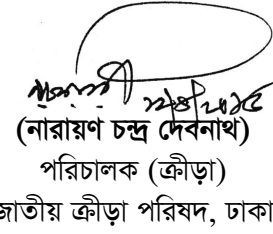 (নারায়ণ চন্দ্র দেবনাথ)
পরিচালক (ক্রীড়া)
জাতীয় ক্রীড়া পরিষদ, ঢাকা